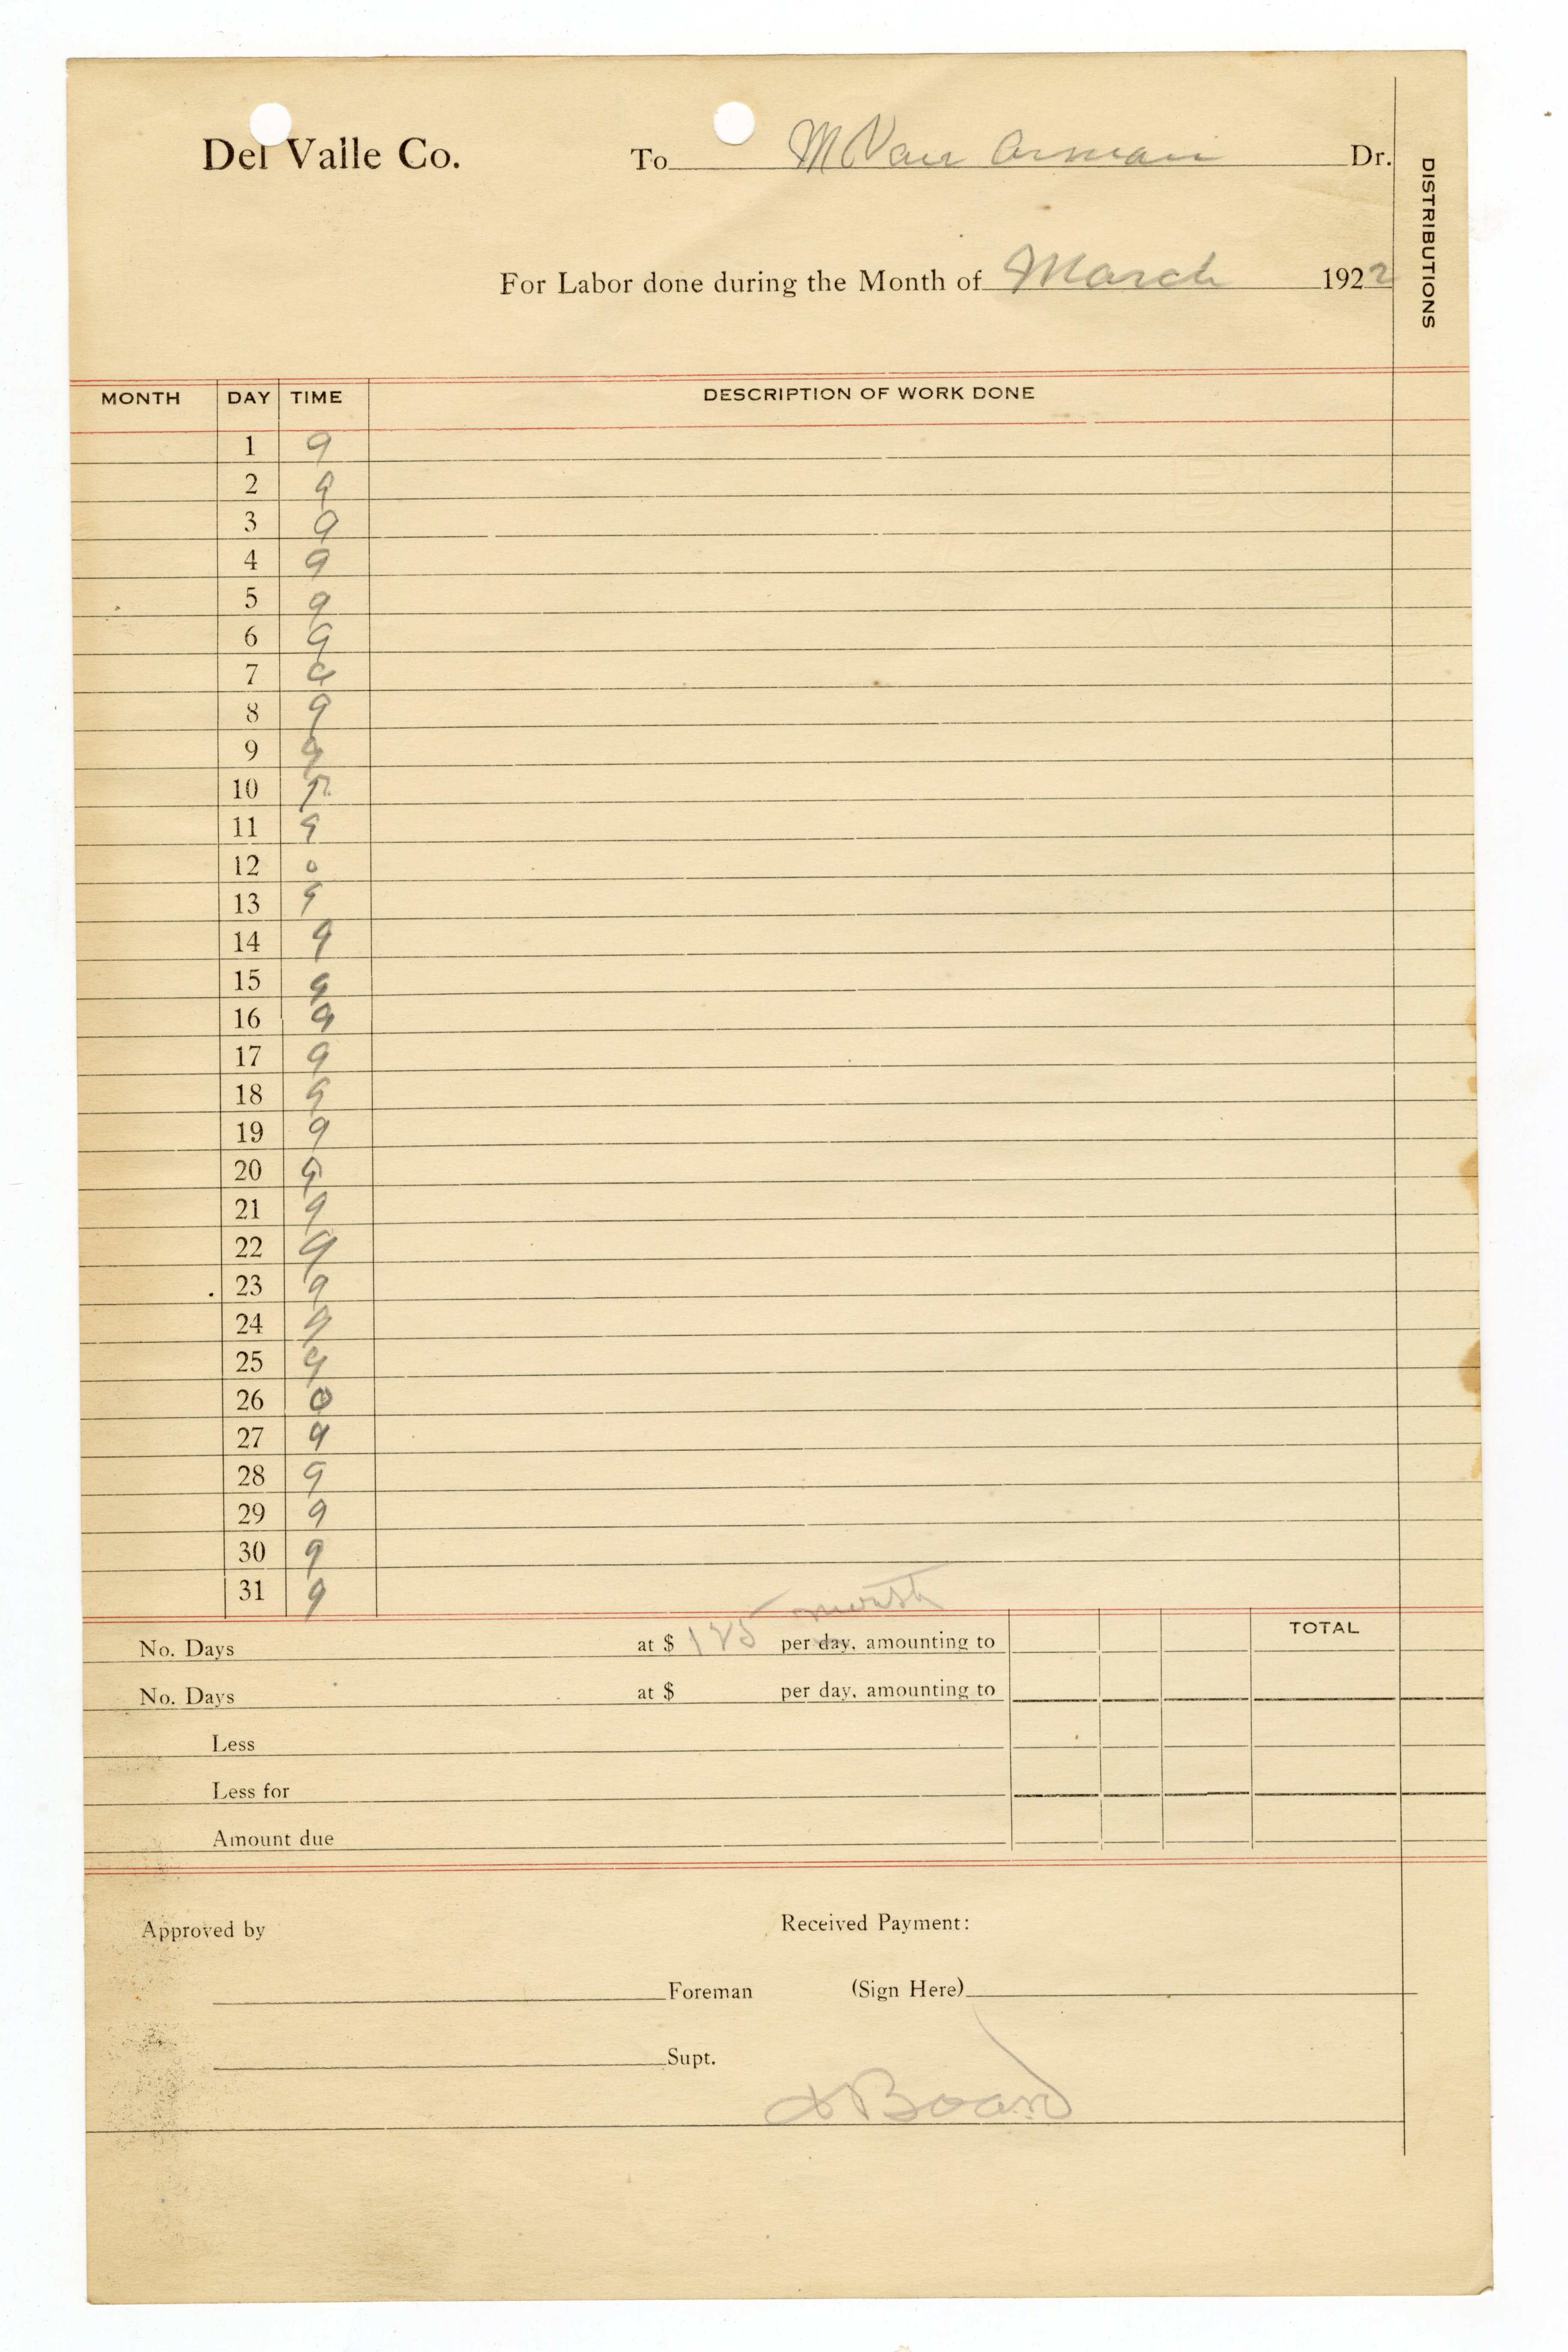 Del Valle Co. To M Van Arman Dr.
DISTRIBUTIONS
For Labor done during the Month of March 1922
MONTH DAY TIME DESCRIPTION OF WORK DONE
1 9
2 9
3 9
4 9
5 9
6 9
7 9
8 9
9 9
10
11 9
12 0
13 9
14 9
15 9
16 9
17 9
18 9
19 9
20 9
21 9
22 9
23 9
24 9
25 9
26 0
27 9
28 9
29 9
30 9
31 9
month
No. Days at $ 125 per day, amounting to TOTAL
No. Days at $ per day, amounting to
Less
Less for
Amount due
Approved by Received Payment:
Foreman (Sign Here)
Supt.
& Board